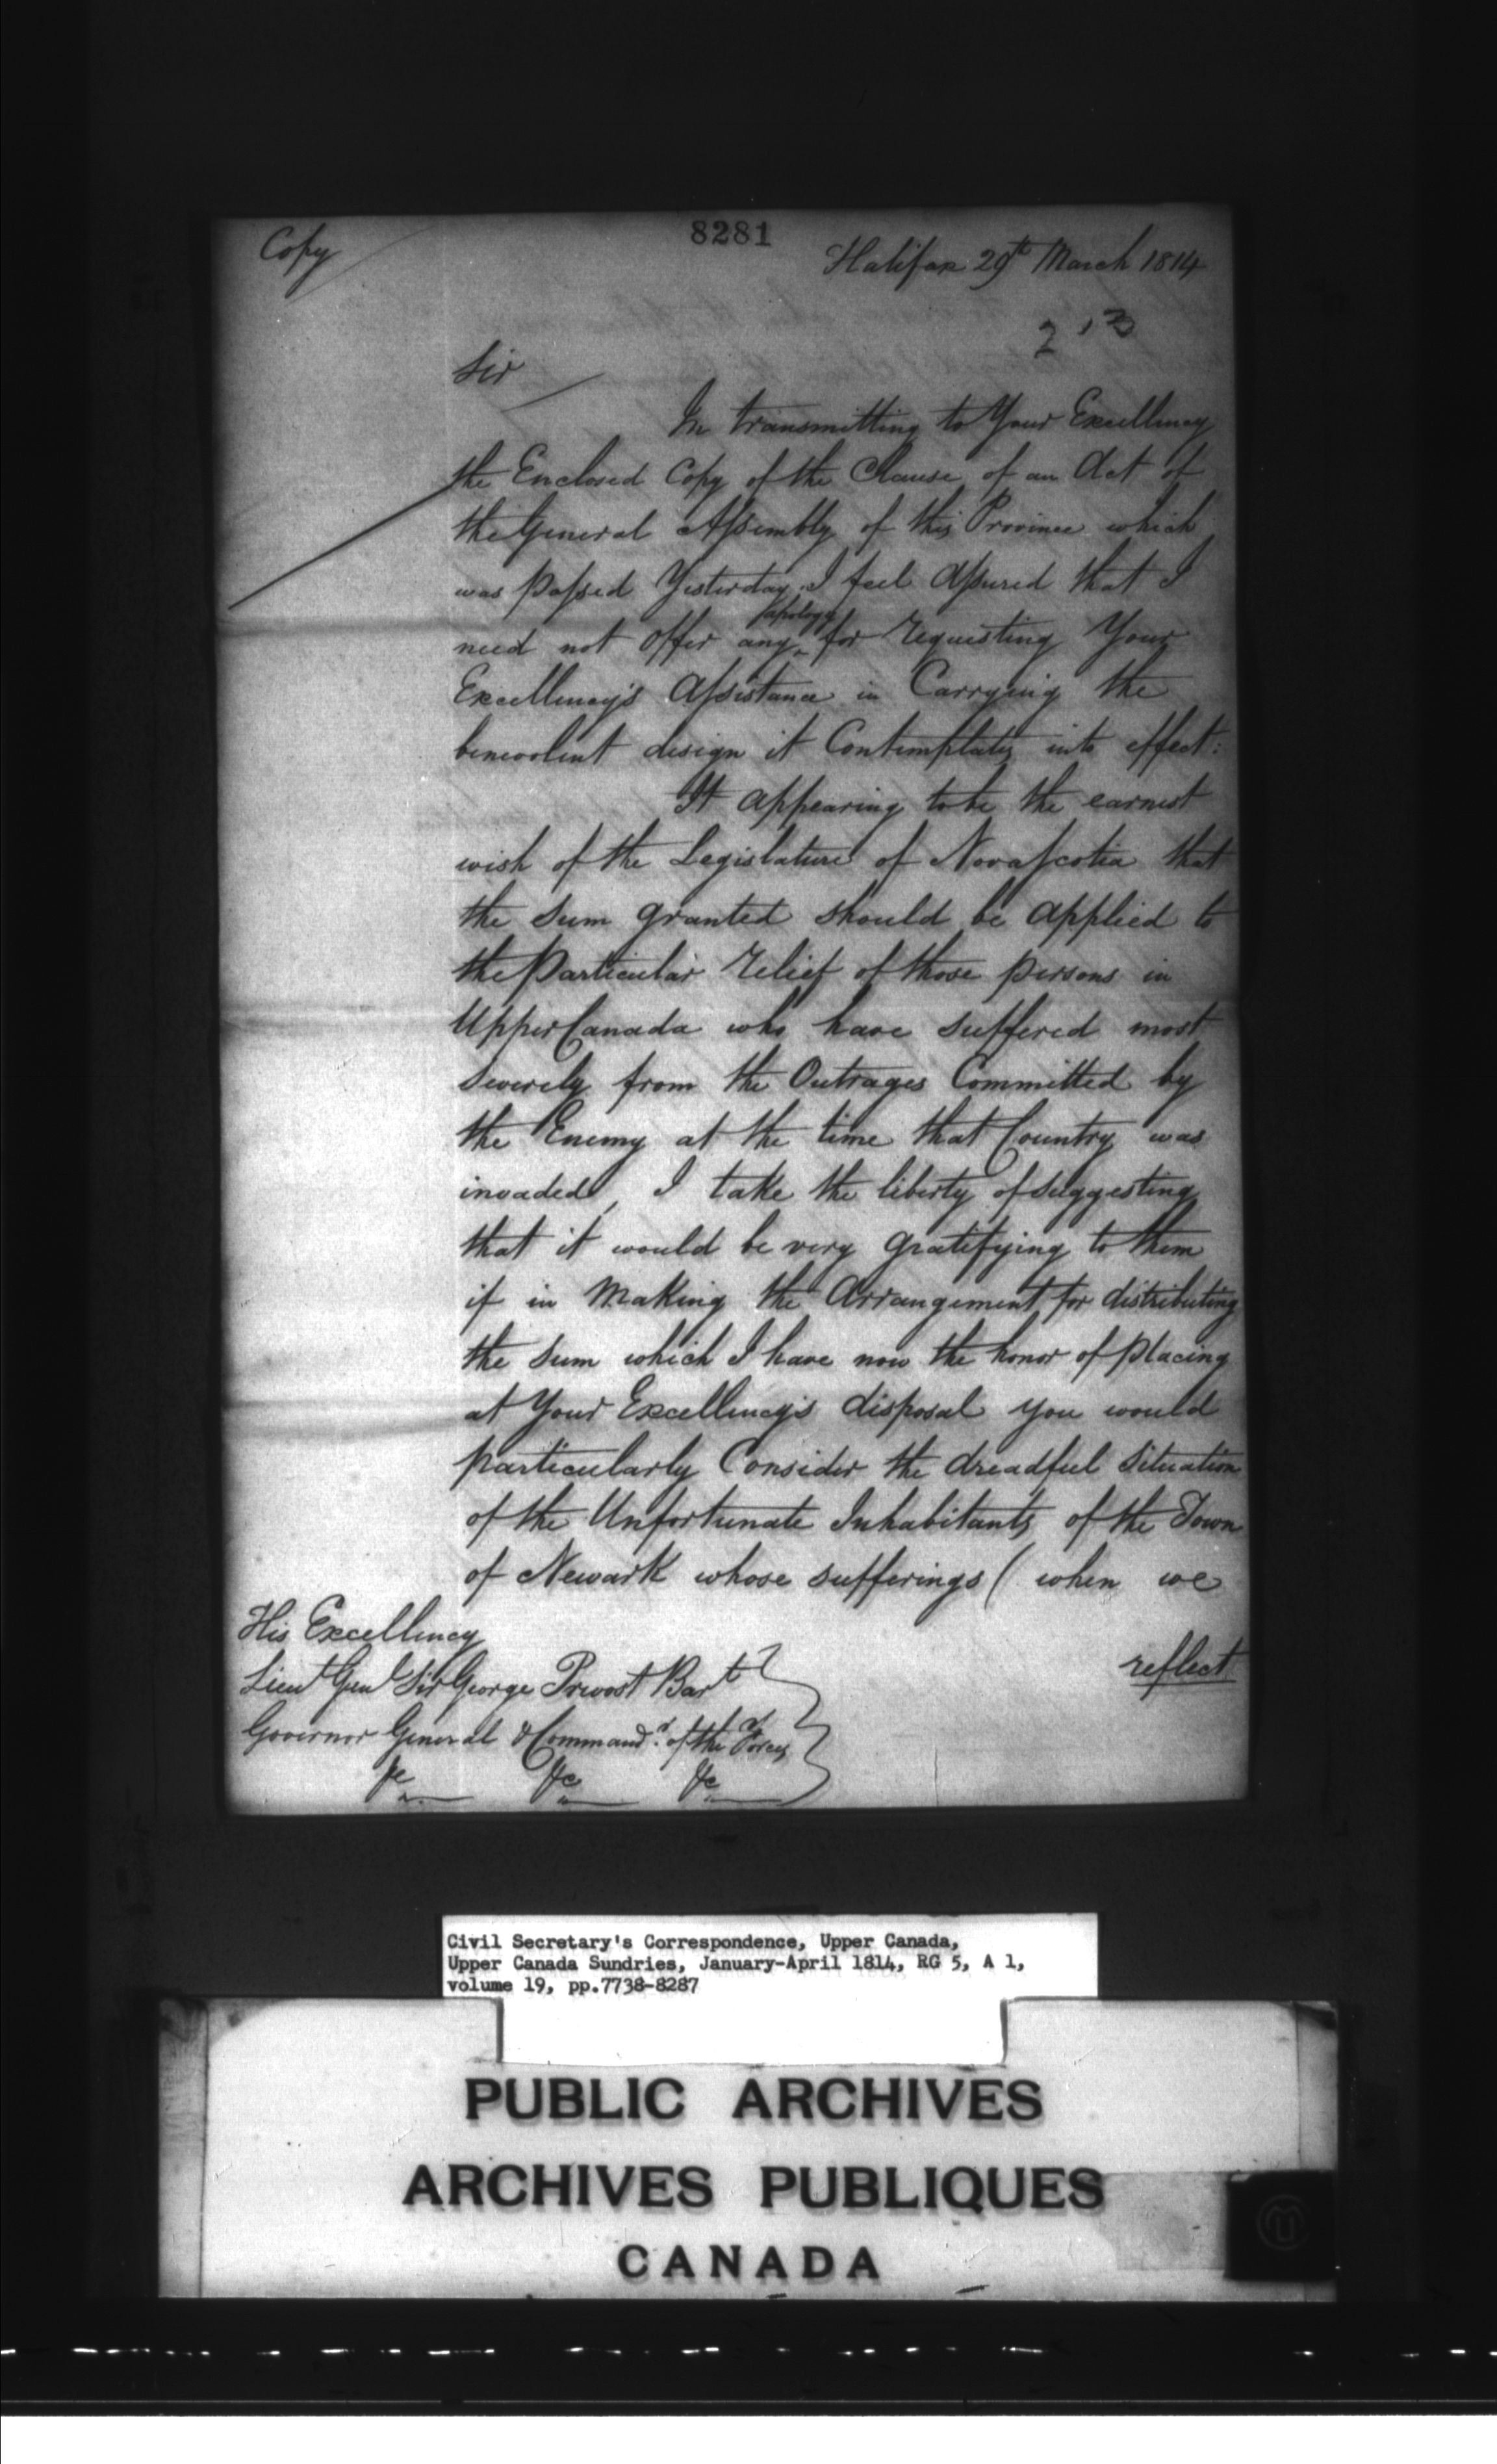 Copy
8281
Halifax 29th March 1814
2 13
Sir
In transmitting to Your Excellency
the Enclosed Copy of the Clause of an Act of
the General Assembly of this Province which
was passed Yesterday. I feel Assured that I
need not offer any apology for requesting Your
Excellency's Assistance in Carrying the
benevolent design it Contemplates into effect:
It appearing to be the earnest
wish of the Legislature of Nova Scotia that
the Sum granted should be applied to
the Particular relief of those persons in
Upper Canada who have suffered most
Severely from the Outrages Committed by
the Enemy at the time that Country was
invaded, I take the liberty of suggesting
that it would be very gratifying to them
if in Making the Arrangement for distributing
the Sum which I have now the honor of placing
at Your Excellency's disposal you would
particularly Consider the dreadful Situation
of the Unfortunate Inhabitants of the Town
of Newark whose sufferings ( when we
reflect
His Excellency
Lieut Genl Sir George Prevost Bart
Governor General & Commandr. of the Forces
&c &c &c
Civil Secretary's Correspondence, Upper Canada,
Upper Canada Sundries, January-April 1814, RG 5, A 1,
volume 19, pp.7738-8287
PUBLIC ARCHIVES
ARCHIVES PUBLIQUES
CANADA